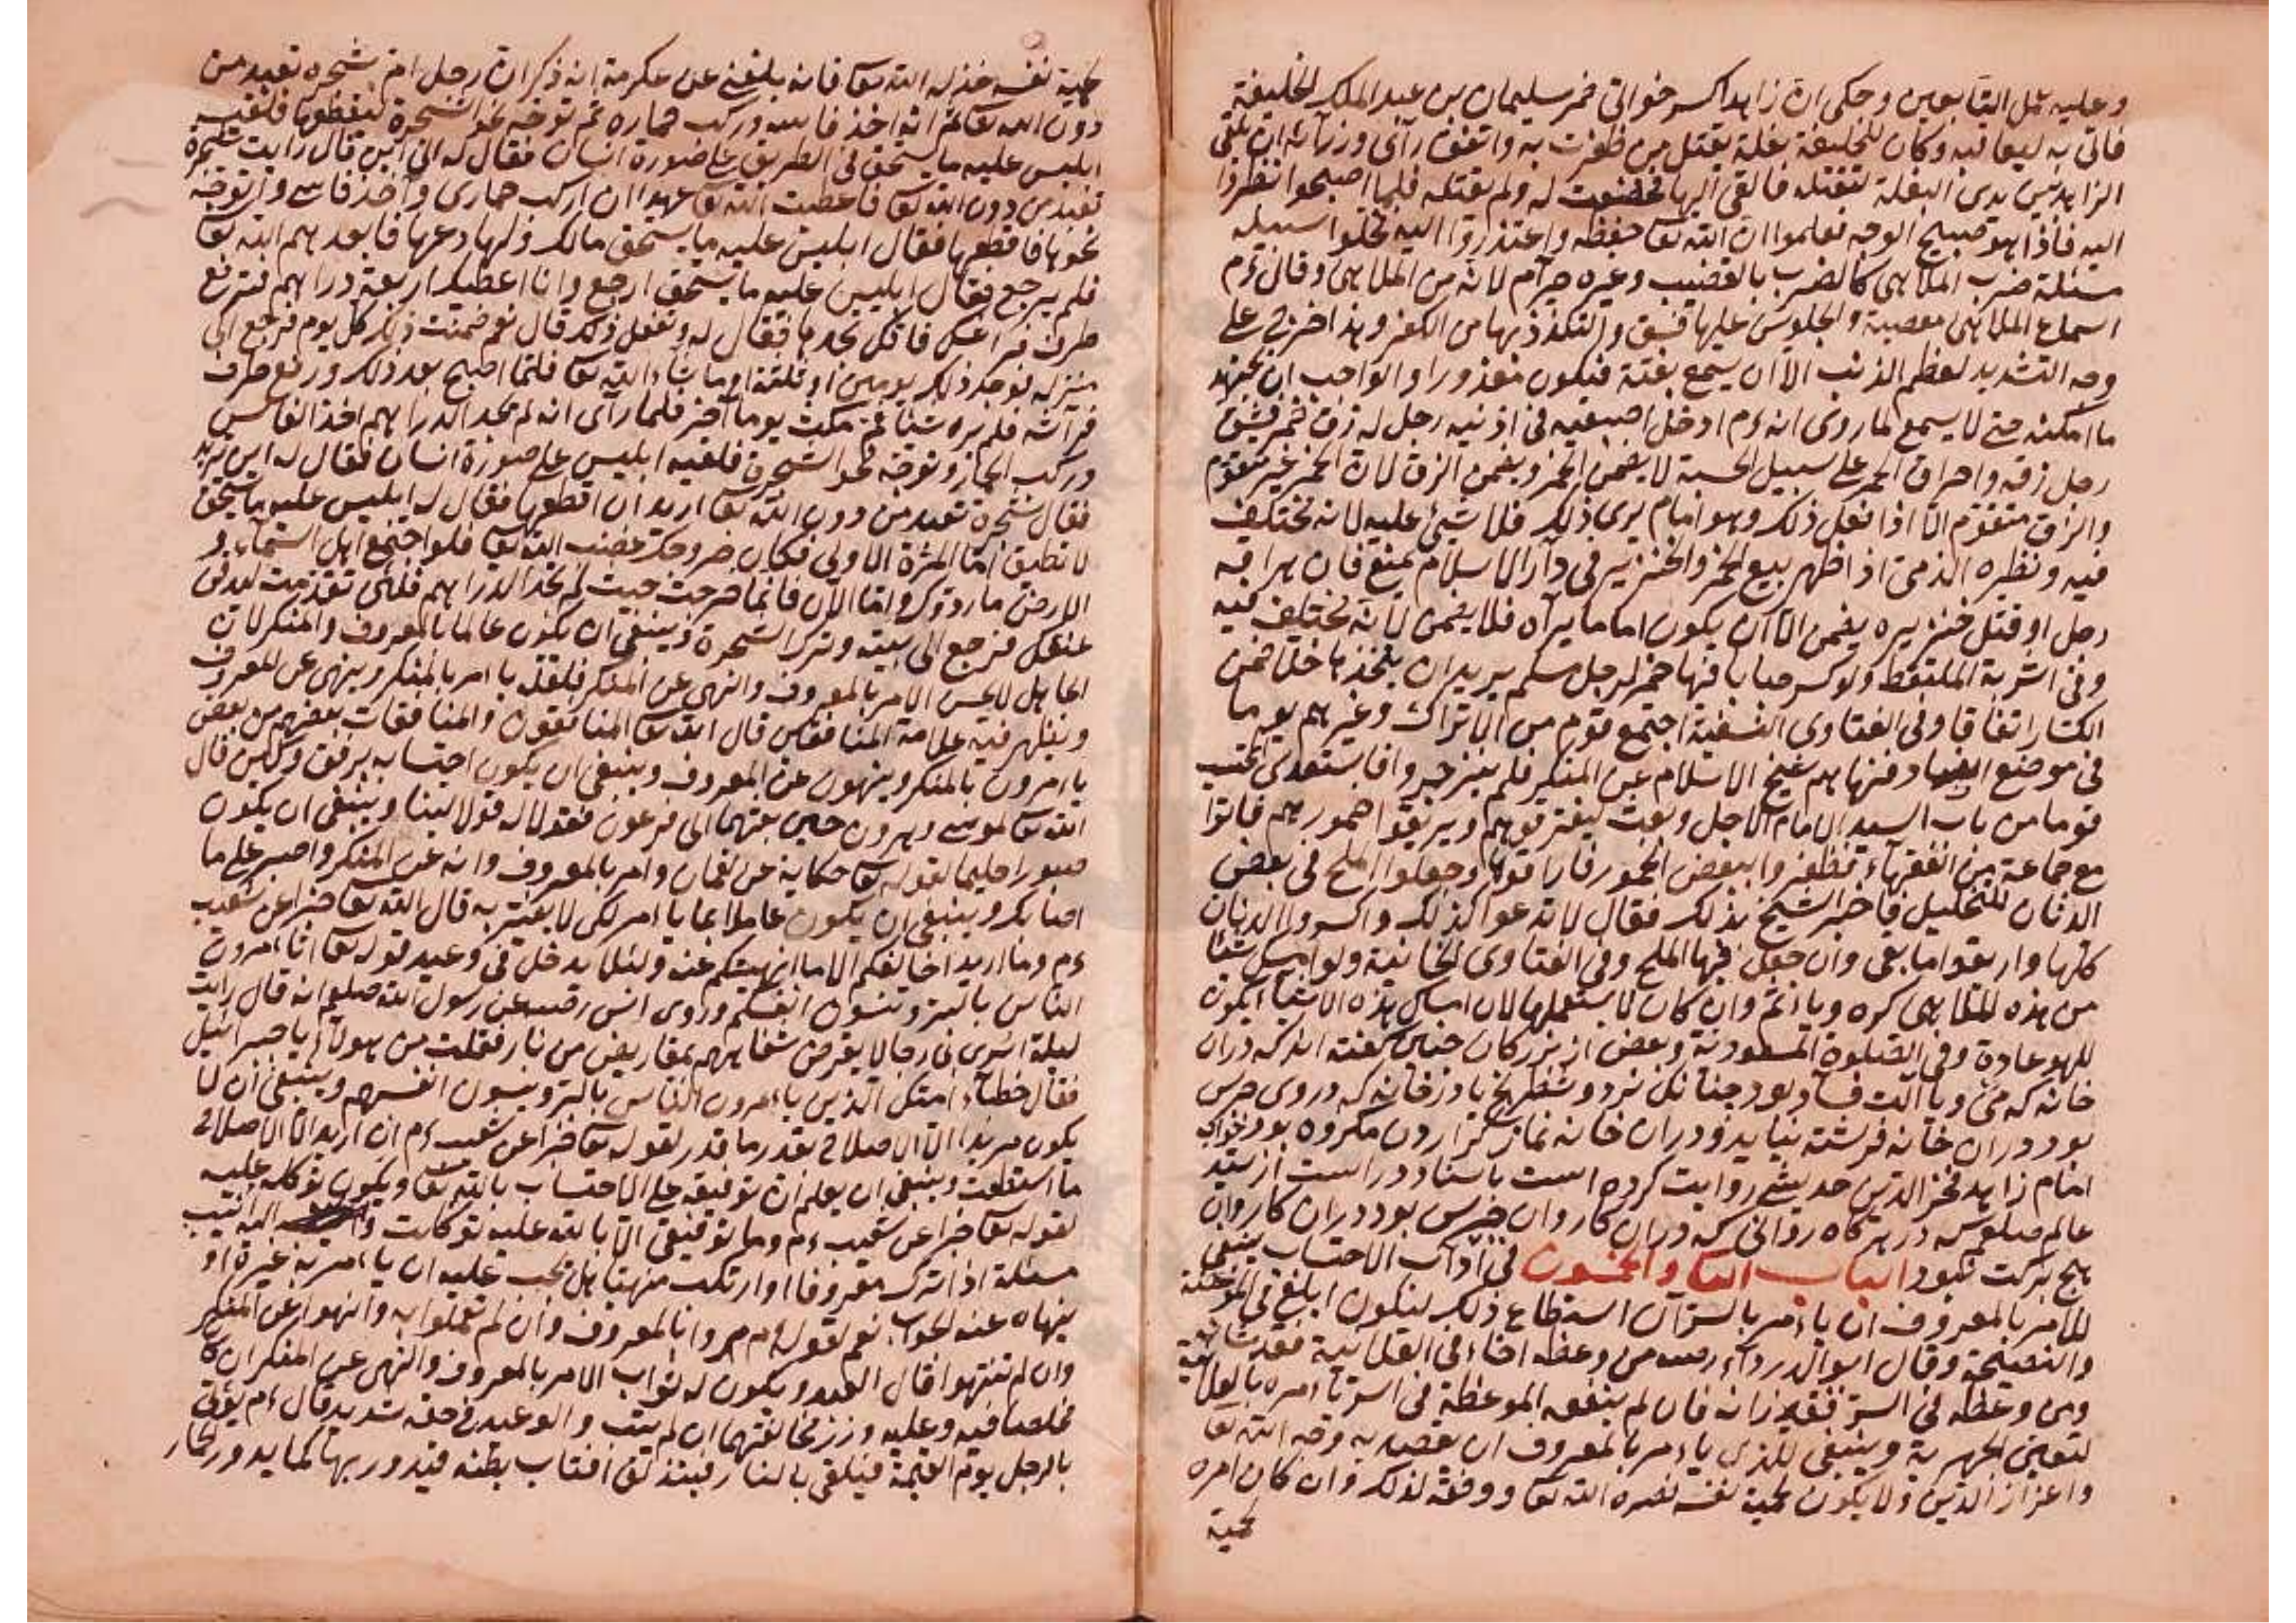 وعليه عمل التابعين وحكى ان زاهدا كسر خوابى خمر سليمان بن عبد الملك الخليفة
فاتى به ليعاقبه وكان للخليفة بغلة يقتل من ظفرت به واتفق رأى وزرائه ان يلقى
الزاهد بين يدى البغلة لتقتله فالقى اليها فخضعت له ولم يقتله فلما اصبحوا نظروا
اليه فاذا هو صبيح الوجه فعلموا ان الله تعا حفظه واعتذروا اليه فخلوا سبيله
مسئلة ضرب الملاهى كالضرب بالقضيب وغيره حرام لانه من الملاهى وقال ءم
استماع الملاهى معصية والجلوس عليها فسق والتلذذ بها من الكفر وهذا خرج على
وجه التشديد لعظم الذنب الا ان يسمع بغتة فيكون معذورا والواجب ان يجتهد
ما امكنه حتى لا يسمع لما روى انه ءم ادخل اصبعيه فى اذنيه رجل له زق خمر فشق
رجل زقه واهراق الخمر على سبيل الحسبة لا يضمن الخمر ويضمن الزق لان الخمر غير متقوم
والزق متقوم الا اذا فعل ذلك وهو امام يرى ذلك فلا شيئ عليه لانه مختلف
فيه ونظيره الذمى اذا اظهر بيع الخمر والخنزير فى دار الاسلام يمنع فان هراقه
رجل او قتل خنزيره يضمن الا ان يكون اماما يراه فلا يضمن لانه مختلف فيه
وفى اشربة الملتقط ولو كسر حبابا فيها خمر لرجل مسلم يريد ان يتخذها خلا ضمن
الكسار اتفاقا وفى الفتاوى النسفية اجتمع قوم من الاتراك وغيرهم يوما
فى موضع الفساد فنهاهم شيخ الاسلام عن المنكر فلم ينزجروا فاستعدى المحتسب
قوما من باب السيد الامام الاجل وبعث ليفرقوهم ويريقوا خمورهم فاتوا
مع جماعة من الفقهاء فظفروا ببعض الخمور فاراقوها وجعلوا الملح فى بعض
الدنان للتخليل فاخبر الشيخ بذلك فقال لا تدعوا كذلك واكسروا الدنان
كلها واريقوا ما بقى وان جعل فيها الملح وفى الفتاوى الخانية ولو امسك شيئا
من هذه الملاهى كره ويأثم وان كان لا يستعملها لان امساك هذه الاشياء يكون
للهو عادة وفى الصلوة المسعودية وبعض از بزركان چنين كفته اند كه دران
خانه كه مى وبا آلت فساد بود چنانكه نرد وشطرنج يا در خانه كه در وى جرس
بود دران خانه فرشته نيايد ودران خانه نماز كزاردن مكروه بود خواجه
امام زاهد فخر الدين حديثى روايت كرده است باسناد درست از سيد
عالم صلعم كه در هر كاه روانى كه دران كاروان جرس بود دران كاروان
هيچ بركت نبود الباب الثا والخمسون فى آداب الاحتساب ينبغى
للآمر بالمعروف ان يأمر بالسر ان استطاع ذلك ليكون ابلغ فى الموعظة
والنصيحة وقال ابو الدرداء رصه من وعظ اخاه فى العلانية فقد شانه
ومن وعظه فى السر فقد زانه فان لم ينفعه الموعظة فى السر يأمره بالعلانية
لتعين الجهر به وينبغى للذى يأمر بالمعروف ان يقصد به وجه الله تعا
واعزاز الدين ولا يكون لحمية نفسه نصره الله تعا ووفقه لذلك وان كان امره
لحمية
لحمية نفسه خذله الله تعا فانه بلغنى عن عكرمة انه ذكر ان رجلا مر شجرة تعبد من
دون الله تعا ثم انه اخذ فاسه وركب حماره ثم توجه نحو الشجرة ليقطعها فلقيه
ابليس عليه ما يستحق فى الطريق على صورة انسان فقال له الى اين قال رايت شجرة
تعبد من دون الله تعا فاعطيت الله تعا عهدا ان اركب حمارى وآخذ فاسى واتوجه
نحوها فاقطعها فقال ابليس عليه ما يستحق مالك ولها دعها فابعدهم الله تعا
فلم يرجع فقال ابليس عليه ما يستحق ارجع وانا اعطيك اربعة دراهم فترفع
طرف فراشك فانك تجدها فقال له وتفعل ذلك قال نعم ضمنت ذلك كل يوم فرجع الى
منزله فوجد ذلك يومين او ثلثة او ما شاء الله تعا فلما اصبح بعد ذلك ورفع طرف
فراشه فلم يره شيئا ثم مكث يوما آخر فلما رأى انه لم يجد الدراهم اخذ الفاس
وركب الحمار وتوجه نحو الشجرة فلقيه ابليس على صورة انسان فقال له اين تريد
فقال شجرة تعبد من دون الله تعا اريد ان اقطعها فقال له ابليس عليه ما يستحق
لا تطيق اما المرة الاولى فكان خروجك غضب الله تعا فلو اجتمع اهل السماء و
الارض ما ردوك واما الآن فانما خرجت حيث لم تجد الدراهم فلئن تقدمت ليدقن
عنقك فرجع الى بيته وترك الشجرة وينبغى ان يكون عالما بالمعروف والمنكر لان
الجاهل لا يحسن الامر بالمعروف والنهى عن المنكر فلعله يأمر بالمنكر وينهى عن المعروف
ويظهر فيه علامة المنافقين قال الله تعا المنافقون والمنافقات بعضهم من بعض
يأمرون بالمنكر وينهون عن المعروف وينبغى ان يكون احتسابه برفق ولين قال
الله تعا لموسى وهرون حين بعثهما الى فرعون فقولا له قولا لينا وينبغى ان يكون
صبورا حليما لقوله تعا حكاية عن لقمان وامر بالمعروف وانه عن المنكر واصبر على ما
اصابك وينبغى ان يكون عاملا بما يأمر لكى لا يعير به قال الله تعا خبرا عن شعيب
ءم وما اريد ان اخالفكم الا ما انهيتكم عنه ولئلا يدخل فى وعيد قوله تعا اتأمرون
الناس بالبر وتنسون انفسكم وروى انس رضه عن رسول الله صلعم انه قال رايت
ليلة اسرى بى رجالا يقرض شفاههم بمقاريض من نار فقلت من هولاء يا جبرائيل
فقال خطباء امتك الذين يأمرون الناس بالبر وينسون انفسهم وينبغى ان لا
يكون مريدا الا الاصلاح بقدر ما قدر لقوله تعا خبرا عن شعيب ءم ان اريد الا الاصلاح
ما استطعت وينبغى ان يعلم ان توفيقه على الاحتساب بالله تعا ويكون توكله عليه
لقوله تعا خبرا عن شعيب ءم وما توفيقى الا بالله عليه توكلت واليه انيب
مسئلة اذا ترك معروفا او ارتكب منهيا هل يجب عليه ان يأمر به غيره او
ينهاه عنه الجواب نعم لقوله ءم مروا بالمعروف وان لم تعملوا به وانهوا عن المنكر
وان لم تنتهوا قال العبد ويكون له ثواب الامر بالمعروف والنهى عن المنكر ان كان
مخلصا فيه وعليه وزر مخالفتهما ان لم يتب والوعيد فى حقه شديد قال ءم يؤتى
بالرجل يوم القيمة فيلقى بالنار فيندلق اقتاب بطنه فيدور بها كما يدور الحمار